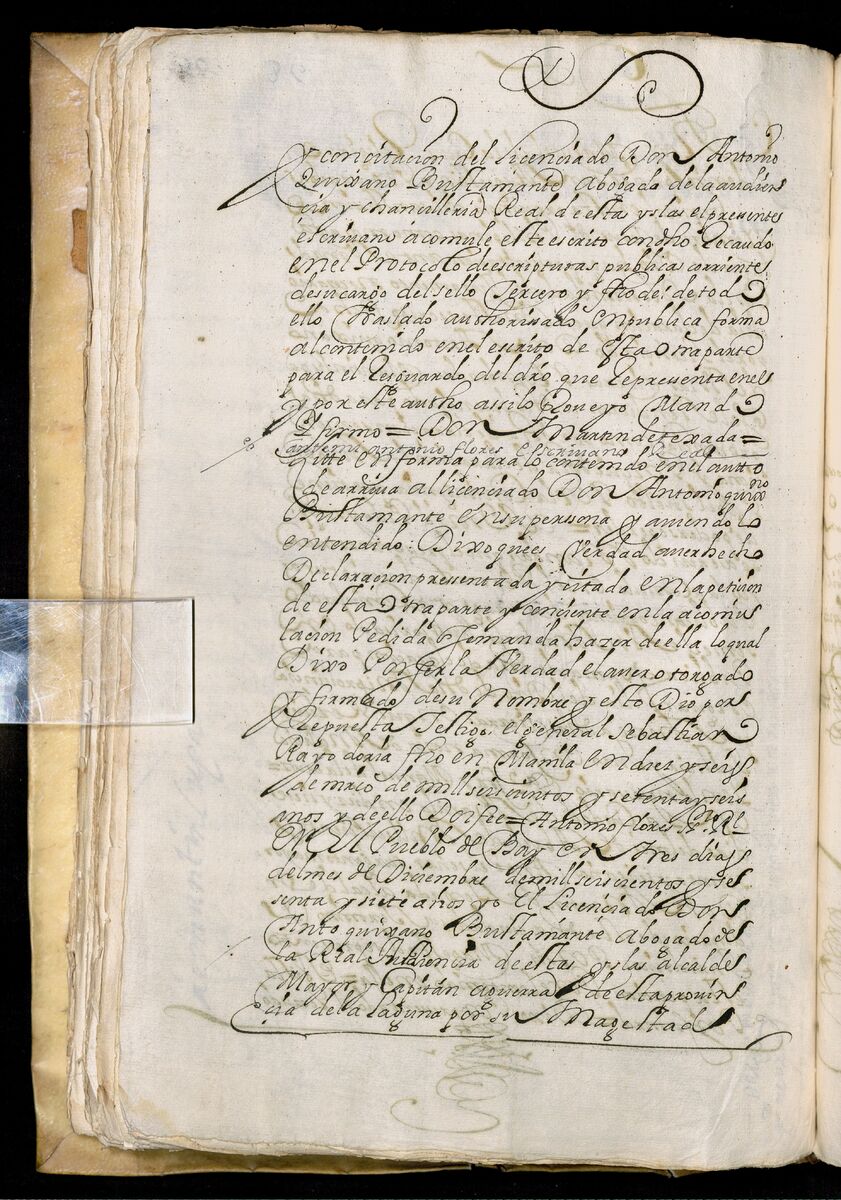 y concitacion del Licenciado Don Antonio
Quixano Bustamante Abogado de la audien
cia y chancilleria Real de estas yslas el presente
escrivano acomule este escrito con dho Recaudo
en el Protocolo de escripturas publicas corriente
de su cargo del sello Tercero y de todo
ello traslado authorisado en publica forma
al contenido en el escrito de esta otra parte
para el Resguardo del dro que Representa en el
y por este autho assi lo Proveyo Mando
y firmo = Don Martin de texada =
ante mi antonio flores escrivano Real
cite en forma para lo contenido en el auto
de arriva al licenciado Don Antonio quixno
Bustamante en su persona y aviendo lo
entendido: Dixo que es Verdad aver hecho
Declaracion presentada y citada en la peticion
de esta otra parte y conciente en la acomu
lacion Pedida y se manda hazer de ella lo qual
Dixo Por ser la Verdad el aver otorgado
y firmado de su Nombre y esto Dio por
Repuesta Testigo el general sebastian
Rayo doria fho en Manila en diez y seis
de maio de mill seiscientos y setenta y seis
anos y de ello Doi fee = Antonio flores sno Rl
En el Pueblo de Bay en tres dias
del mes de Diciembre de mill seiscientos y se
senta y siete años yo El Licenciado Don
Anto quixano Bustamante Abogado de
la Real Audiencia de estas yslas alcalde
Mayor y Capitan a guerra de esta provin
cia de la laguna por su Magestad